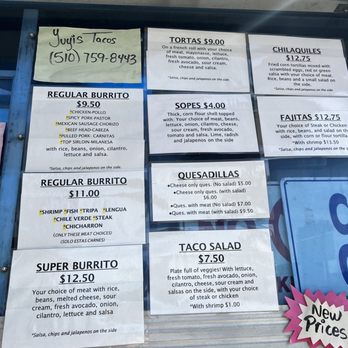 Yuyis Tacos
(510) 759-8443
TORTAS $9.00
On a french roll with your choice
of meat, mayonnaise, lettuce,
tomato, onion, cilantro,
fresh avocado, sour cream,
cheese and salsa.
*Salsa, chips and jalapenos on the side
CHILAQUILES
$12.75
Fried corn tortillas mixed with
scrambled eggs, red or green
salsa with your choice of meat.
Rice, beans and a small salad on
the side.
*Salsa, chips and jalapenos on the side.
REGULAR BURRITO
$9.50
*CHICKEN-POLLO
*SPICY PORK-PASTOR
*MEXICAN SAUSAGE-CHORIZO
*BEEF HEAD-CABEZA
*PULLED PORK- CARNITAS
*TOP SIRLOIN-MILANESA
with rice, beans, onion, cilantro,
lettuce and salsa.
*Salsa, chips and jalapenos on the side.
SOPES $4.00
Thick, corn flour shell topped
with: Your choice of meat, beans,
lettuce, onion, cilantro, cheese,
sour cream, fresh avocado,
tomato and salsa. Lime, radish
and jalapenos on the side
FAJITAS $12.75
Your choice of Steak or Chicken
with rice, beans, and salad on the
side, with corn or flour tortillas
*With shrimp $13.50
*Salsa, chips and jalapenos on the side.
REGULAR BURRITO
$11.00
*SHRIMP *FISH *TRIPA *LENGUA
*CHILE VERDE *STEAK
*CHICHARRON
(ONLY THESE MEAT CHOICES)
(SOLO ESTAS CARNES)
with rice, beans, onion, cilantro,
lettuce and salsa.
QUESADILLAS
•Cheese only ques. (No salad) $5.00
•Cheese only ques. (with salad)
$6.00
•Ques. with meat (No salad) $7.00
•Ques. with meat (with salad) $9.50
SUPER BURRITO
$12.50
Your choice of meat with rice,
beans, melted cheese, sour
cream, fresh avocado, onion,
cilantro, lettuce and salsa.
*Salsa, chips and jalapenos on the side
TACO SALAD
$7.50
Plate full of veggies! With lettuce,
fresh tomato, avocado, onion,
cilantro, cheese, sour cream and
salsas on the side, with your choice
of steak or chicken
*With shrimp $1.00
New
Prices